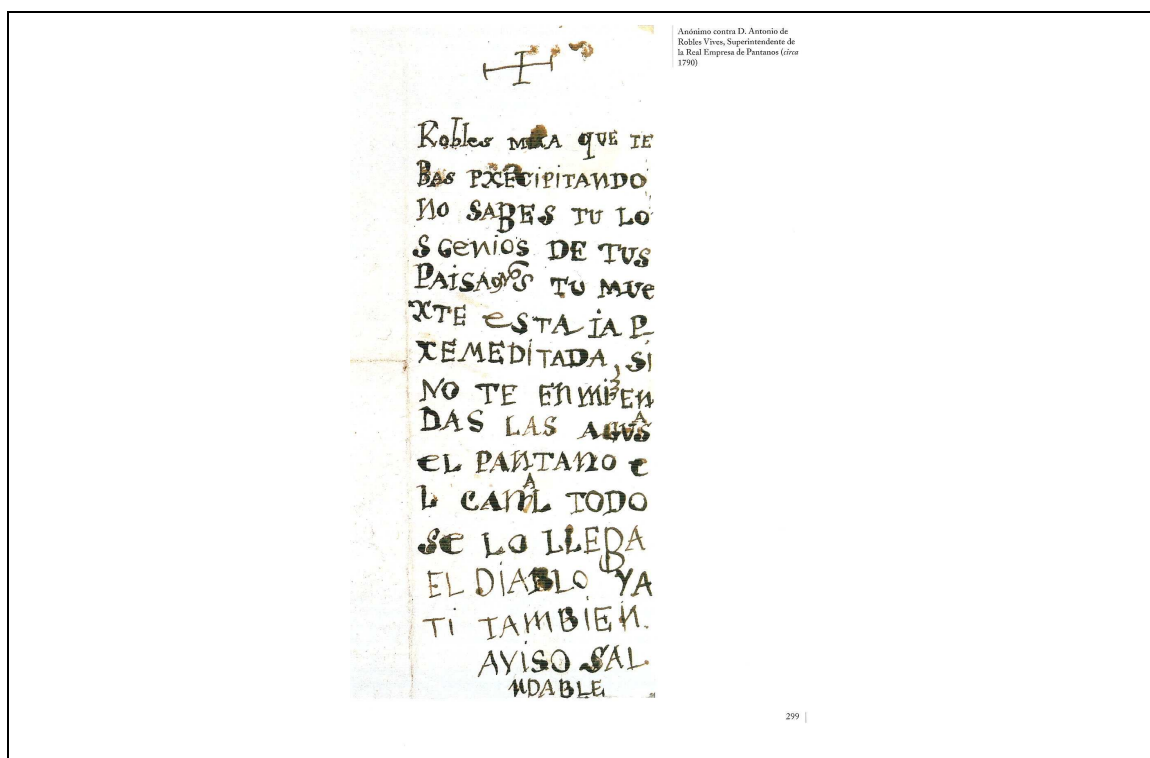 Anónimo contra D. Antonio de
Robles Vives, Superintendente de
la Real Empresa de Pantanos (circa
1790)
Robles MIRA QUE TE
BAS PRECIPITANDO
NO SABES TU LO
S GENIOS DE TUS
PAISANOS TU MUE
RTE ESTA IA P
REMEDITADA, SI
NO TE ENMIEN
DAS LAS AGUAS
EL PANTANO E
L CANAL TODO
SE LO LLEBA
EL DIABLO YA
TI TAMBIEN.
AVISO SAL
UDABLE
299